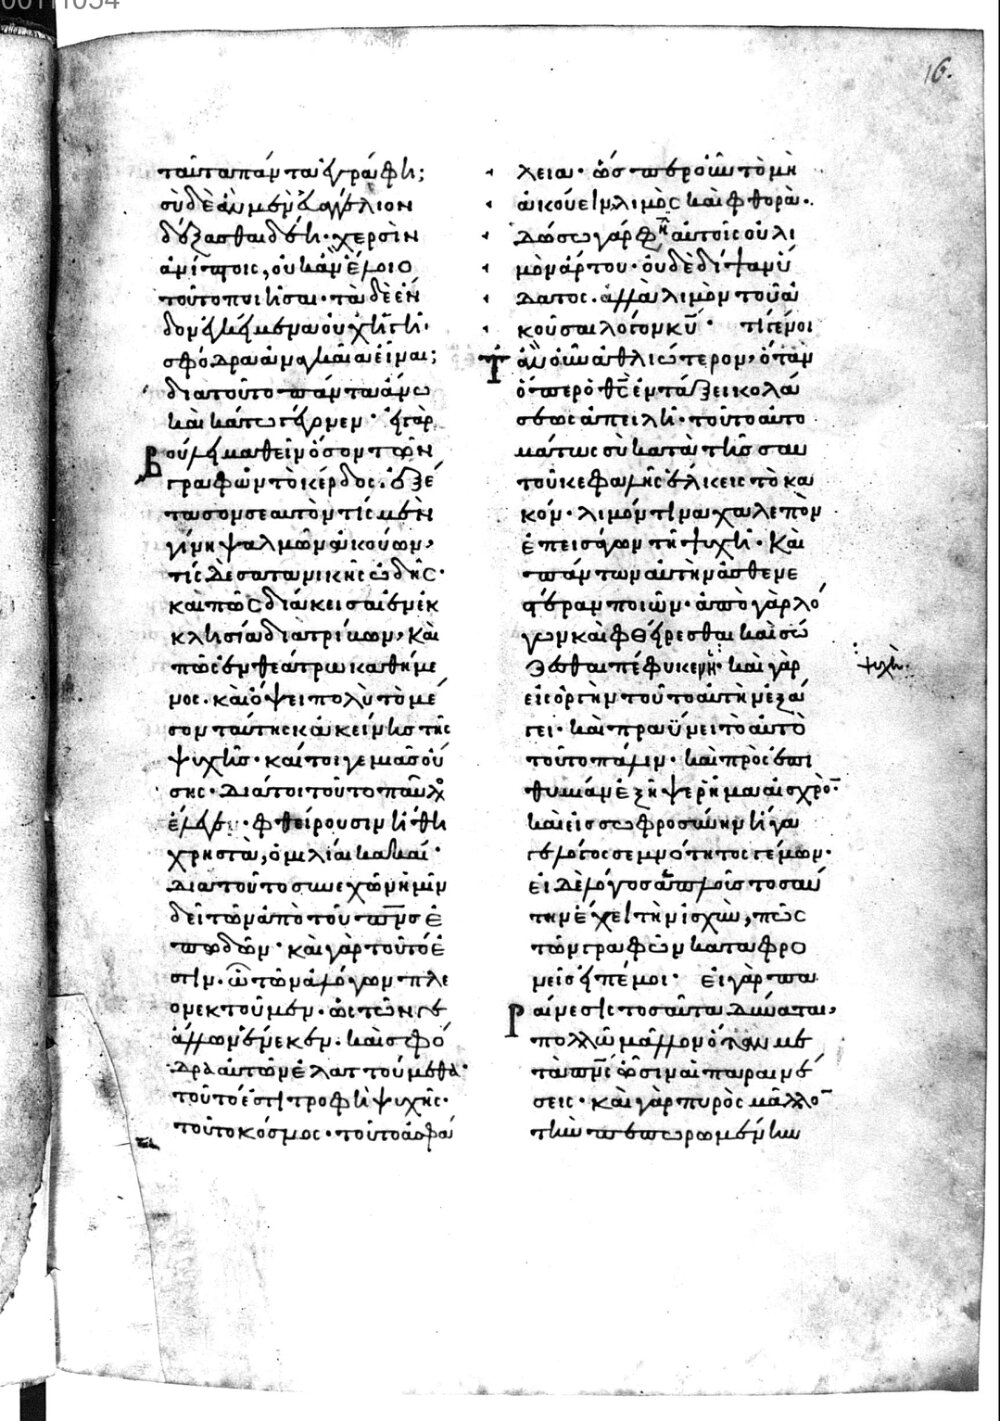 16.
ταῦτα πάντα ἐγράφη;
σὺ δὲ ἂν μὲν εὐαγγέλιον
δέξασθαι δέῃ· χερσὶν
ἀνίπτοις, οὐκ ἂν ἕλοιο
τοῦτο ποιῆσαι· τὰ δὲ ἐν
δον ἐγκείμενα οὐχ ἡγῇ·
σφόδρα ἀναγκαῖα εἶναι;
διὰ τοῦτο πάντα ἄνω
καὶ κάτω γέγονεν· εἰ γὰρ
βούλει μαθεῖν ὅσον τῶν
γραφῶν τὸ κέρδος. ἐξέ
τασον σεαυτὸν τίς μὲν
γίνῃ ψαλμῶν ἀκούων,
τίς δὲ σατανικῆς ὠδῆς·
καὶ πῶς διάκεισαι ἐν ἐκ
κλησία διατρίβων, καὶ
πῶς ἐν θεάτρω καθήμε
νος· καὶ ὄψει πολὺ τὸ μέ
σον ταύτης κἀκείνης τῆς
ψυχῆς· καίτοιγε μιᾶς οὔ
σης· διά τοι τοῦτο παῦλος
ἔλεγε· φθείρουσιν ἤθη
χρηστὰ, ὁμιλίαι κακαί·
διὰ τοῦτο συνεχῶν ἡμῖν
δεῖ τῶν ἀπὸ τοῦ πνς ἐ
πωδῶν· καὶ γὰρ τοῦτό ἐ
στιν. ὧ τῶν ἀλόγων πλε
ονεκτοῦμεν. ὡς τῶν γε
ἄλλων ἕνεκεν. καὶ σφό
δρα αὐτῶν ἐλαττούμεθα·
τοῦτό ἐστι τροφὴ ψυχῆς·
τοῦτο κόσμος· τοῦτο ἀσφά
λεια· ὥσπερ οὖν τὸ μὴ
ἀκούειν λιμὸς καὶ φθορὰ·
δώσω γάρ φη αὐτοῖς οὐ λι
μὸν ἄρτου· οὐδὲ δίψαν ὕ
δατος. ἀλλὰ λιμὸν τοῦ ἀ
κοῦσαι λόγον κυ· τί γένοι
τ ἂν οὖν ἀθλιώτερον, ὅταν
ὅπερ ὁ θς ἐν τάξει κολά
σεως ἀπειλῆ· τοῦτο αὐτο
μάτως σὺ κατὰ τῆς σαυ
τοῦ κεφαλῆς ἕλκεις τὸ κα
κόν· λιμόν τινα χαλεπὸν
ἐπεισάγων τῆ ψυχῆ· καὶ
πάντων αὐτὴν ἀσθενε
στέραν ποιῶν· ἀπὸ γὰρ λό
γων καὶ φθείρεσθαι καὶ σώ
ζεσθαι πέφυκεν· καὶ γὰρ
ψυχὴ·
εἰς ὀργὴν τοῦτο αὐτὴν ἐξά
γει· καὶ πραΰνει τὸ αὐτὸ
τοῦτο πάλιν· καὶ πρὸς ἐπι
θυμίαν ἐξῆψε ῥῆμα αἰσχρὸν
καὶ εἰς σωφροσύνην ἤγα
γε λόγος σεμνότητος γέμων·
εἰ δὲ λόγος ἁπλῶς τοσαύ
την ἔχει τὴν ἰσχὺν, πῶς
τῶν γραφῶν καταφρο
νεῖς εἰπέ μοι· εἰ γὰρ πα
ραίνεσις τοσαῦτα δύναται,
πολλῶ μᾶλλον ὅταν με
τὰ πνς ὦσιν αἱ παραινέ
σεις· καὶ γὰρ πυρὸς μᾶλλον
τὴν πεπωρωμένην